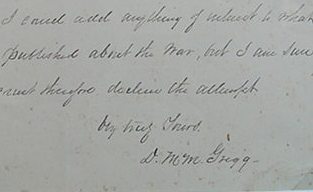 I could add anything of interest to what
published about the War, but I am sure
must therefore decline the attempt
Very truly Yours.
D. McM. Gregg